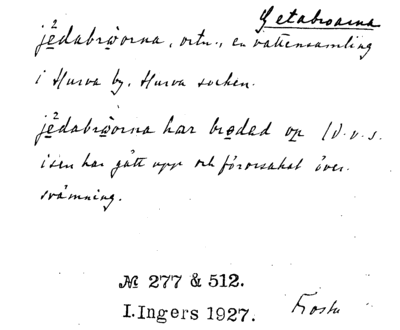 Getabroarna
jẹ²dabrẁorna, ortn., en vattensamling
i Hurva by, Hurva socken.
jẹ²dabrẁorna har brọdad op ɔ: d.v.s.
isen har gått upp och förorsakat över-
svämning.
№ 277 & 512.
I.Ingers 1927. Frosta